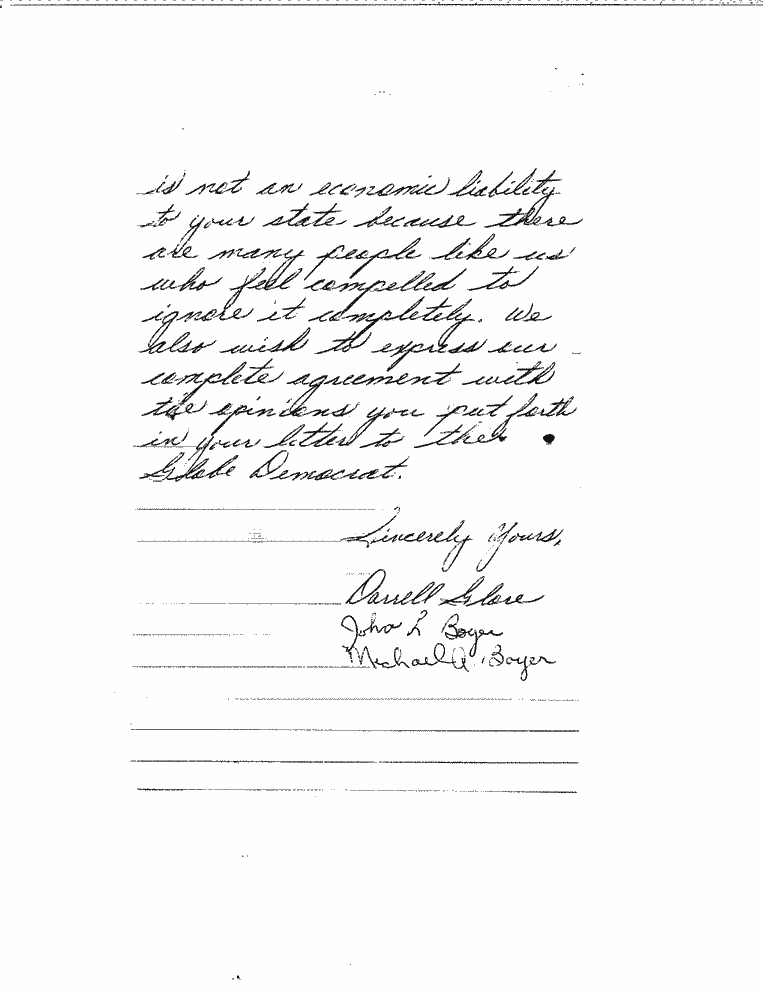 is not an economic liability
to your state because there
are many people like us
who feel compelled to
ignore it completely. We
also wish to express our
complete agreement with
the opinions you put forth
in your letter to the
Globe Democrat.
Sincerely Yours,
Darrell Glore
John L Boyer
Michael A. Boyer